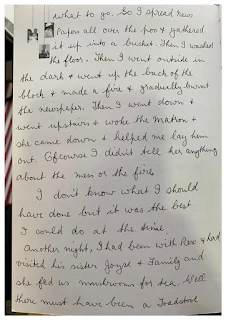 what to go. So I spread news
papers all over the poo & gathered
it up into a bucket. Then I washed
the floor. Then I went outside in
the dark & went up the back of the
block & made a fire & gradually burnt
the newspaper. Then I went down &
went upstairs & woke the Matron &
she came down & helped me lay him
out. Of course I didn't tell her anything
about the mess or the fire.
I don't know what I should
have done but it was the best
I could do at the time.
Another night, I had been with Rex & had
visited his sister Joyse & Family and
she fed us mushrooms for tea. Well
there must have been a Toadstool